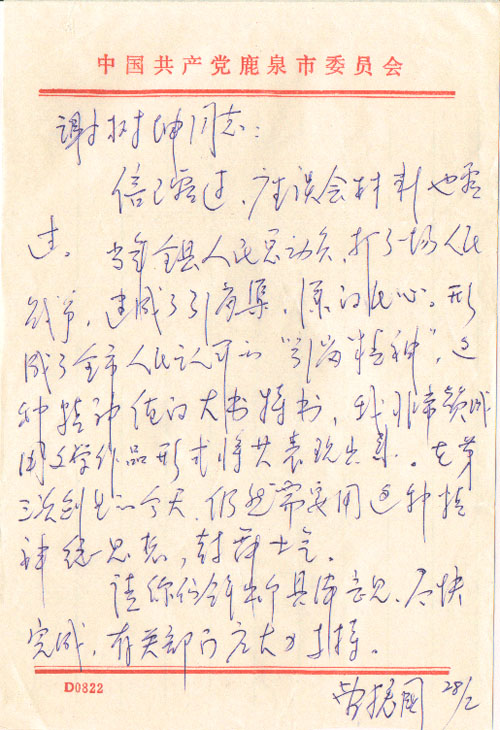 中国共产党鹿泉市委员会
谢树坤同志:
信已看过,座谈会材料也看
过。当年全县人民总动员,打了一场人民
战争,建成了引岗渠,深的民心。形
成了全市人民认可的"引岗精神",这
种精神值的大书特书,我非常赞成
用文学作品形式将其表现出来。在第
三次创业的今天,仍然需要用这种精
神统一思想,鼓舞士气。
请你们拿出个具体意见,尽快
完成,有关部门应大力支持。
28/2
D0822